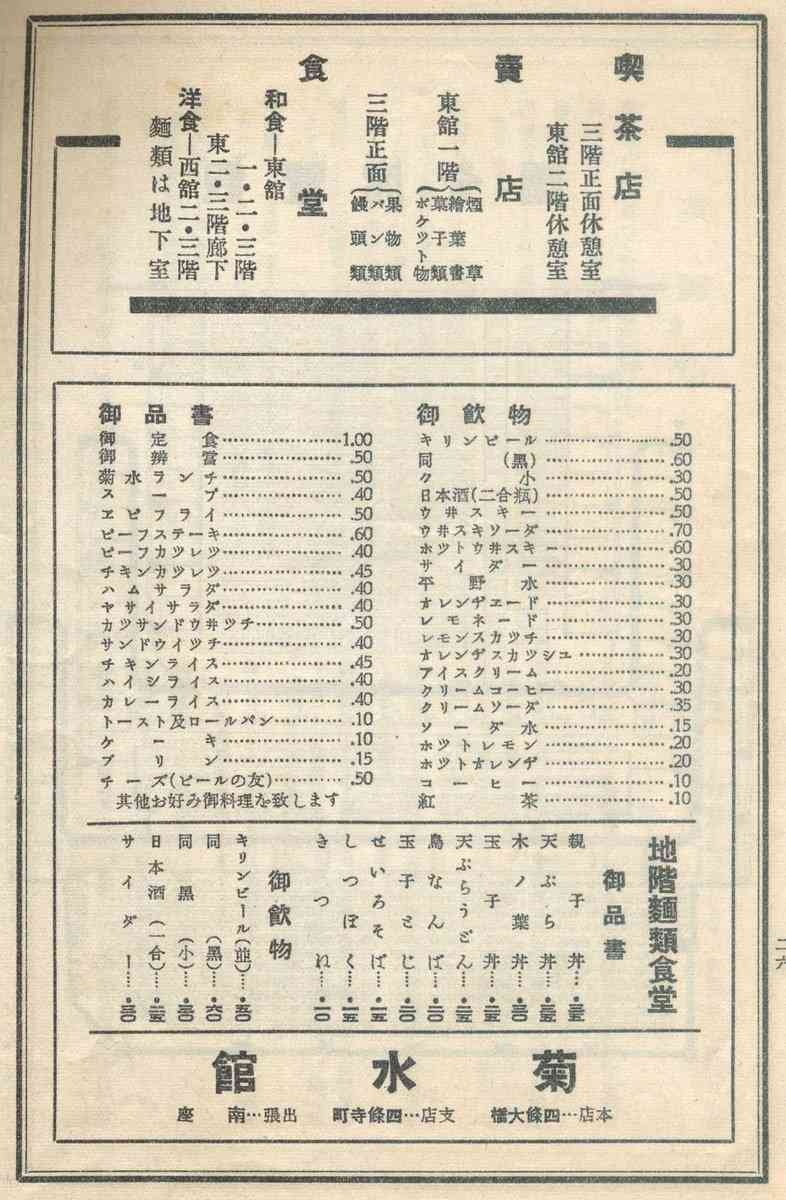 喫茶店
三階正面休憩室
東舘二階休憩室
賣店
東舘一階
煙草
繪葉書
菓子類
ポケツト物
三階正面
果物類
パン類
饅頭類
食堂
和食―東舘
一・二・三階
東二・三階廊下
洋食―西舘二・三階
麵類は地下室
御品書
御定食……1.00
御辨當…….50
菊水ランチ…….50
スープ…….40
ヱビフライ…….50
ビーフステーキ…….60
ビーフカツレツ…….40
チキンカツレツ…….45
ハムサラダ…….40
ヤサイサラダ…….40
カツサンドウ井ツチ…….50
サンドウイツチ…….40
チキンライス…….45
ハイシライス…….40
カレーライス…….40
トースト及ロールパン…….10
ケーキ…….10
プリン…….15
チーズ(ビールの友)…….50
其他お好み御料理な致します
御飮物
キリンビール…….50
同(黑)…….60
〃小…….30
日本酒(二合瓶)…….50
ウ井スキー…….50
ウ井スキソーダ…….70
ホツトウ井スキー…….60
サイダー…….30
平野水…….30
オレンヂエード…….30
レモネード…….30
レモンスカツチ…….30
オレンヂスカツシユ…….30
アイスクリーム…….20
クリームコーヒー…….30
クリームソーダ…….35
ソーダ水…….15
ホツトレモン…….20
ホツトオレンヂ…….20
コーヒー…….10
紅茶…….10
地階麵類食堂
御品書
親子丼……・三五
天ぷら丼……・三五
木ノ葉丼……・三〇
玉子丼……・二五
天ぷらうどん……・二五
鳥なんば……・二〇
玉子とじ……・二〇
せいろそば……・一五
しつぽく……・一五
きつねれ……・一〇
御飮物
キリンビール(並)……・五〇
同(黑)……・六〇
同黑(小)……・三〇
日本酒(一合)……・二五
サイダー……・三〇
菊水館
本店…四條大橋
支店…四條寺町
出張…南座
二六